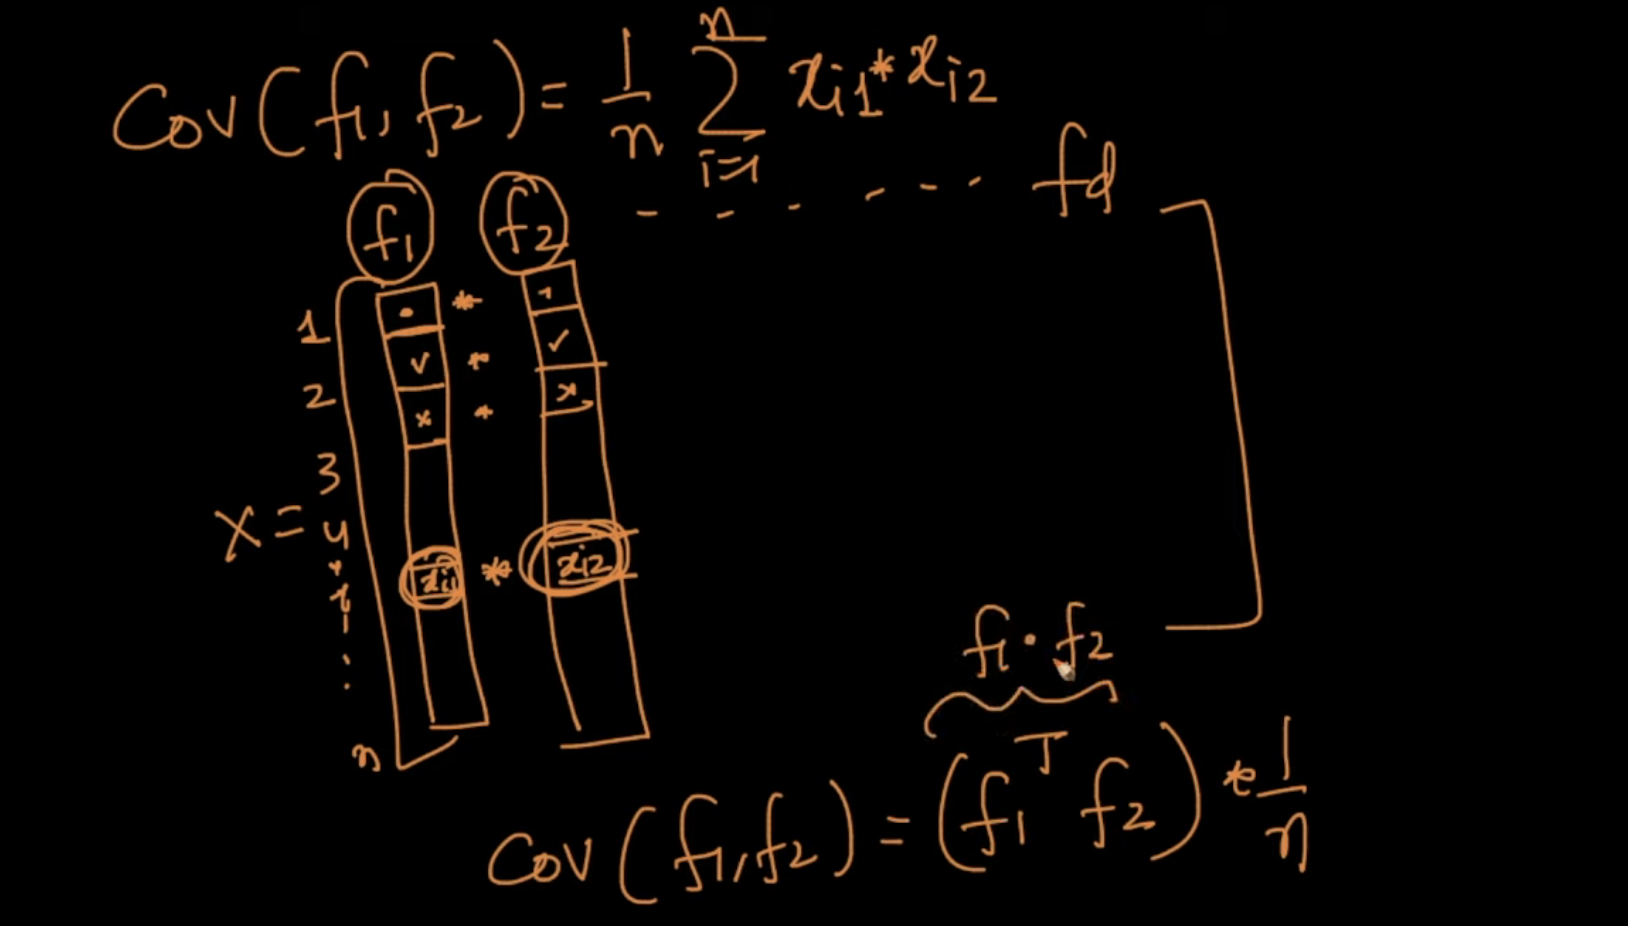 Cov(f1, f2) = 1/n Σ_{i=1}^{n} x_{i1} * x_{i2}
f1 f2 - - - - - - fd
1 • * ¬
2 ✓ * ✓
x * x
3
X = 4
x_{i1} * x_{i2}
i
n
f1 · f2
Cov(f1, f2) = (f1^T f2) * 1/n